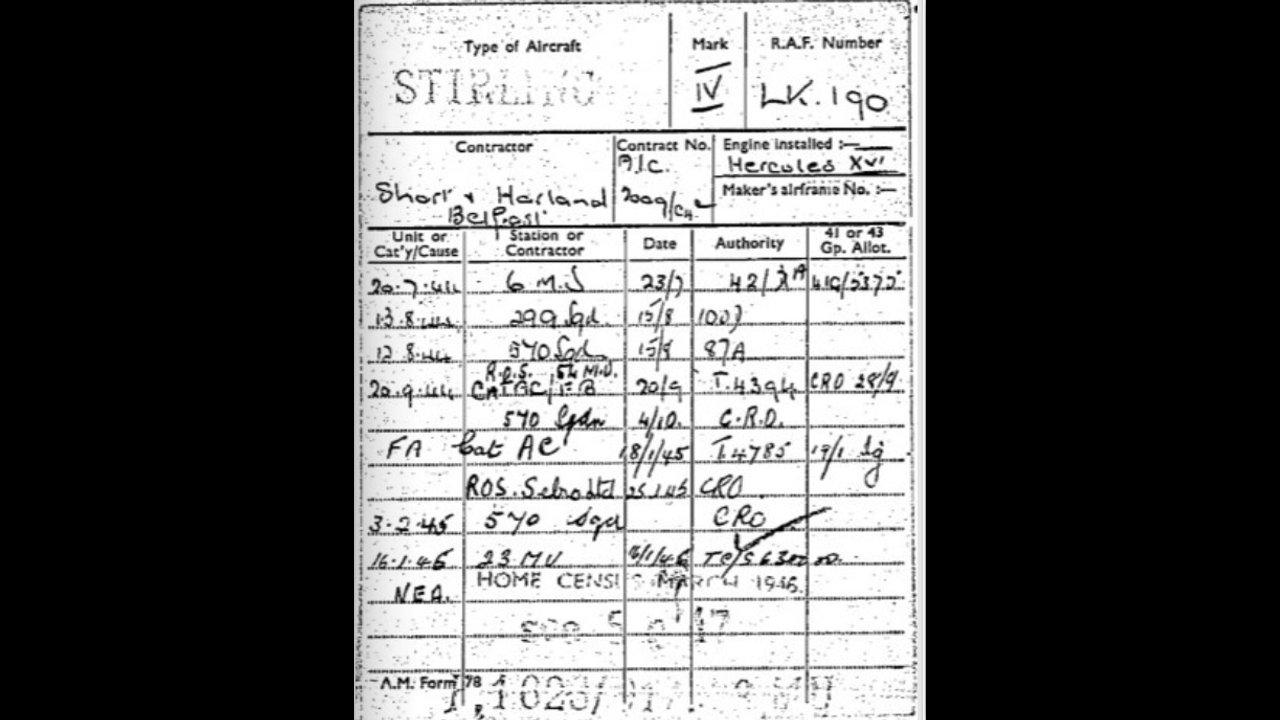 Type of Aircraft Mark R.A.F. Number
STIRLING IV LK.190
Contractor Contract No. Engine installed :—
A.I.C. Hercules XVI
Short & Harland 2009/C4 Maker's airframe No. :—
Belfast
Unit or Cat'y/Cause Station or Contractor Date Authority 41 or 43 Gp. Allot.
20.7.44 6 M.U 23/7 42/ A 41G/
13.8.44 299 Sqd. 15/8
12.8.44 570 Sqd. 15/8 87A
R.O.S. 54 M.U.
20.9.44 CAT AC/FB 20/9 T.4394 CRO 28/9
570 Sqdn 4/10. C.R.D.
FA Cat AC 18/1/45 T.4785 19/1
ROS. Sebro Ltd 25.1.45 CRO.
3.2.45 570 Sqd CRO
16.1.46 23 MU 16/1/46
HOME CENSUS MARCH 1946.
NEA.
A.M. Form 78